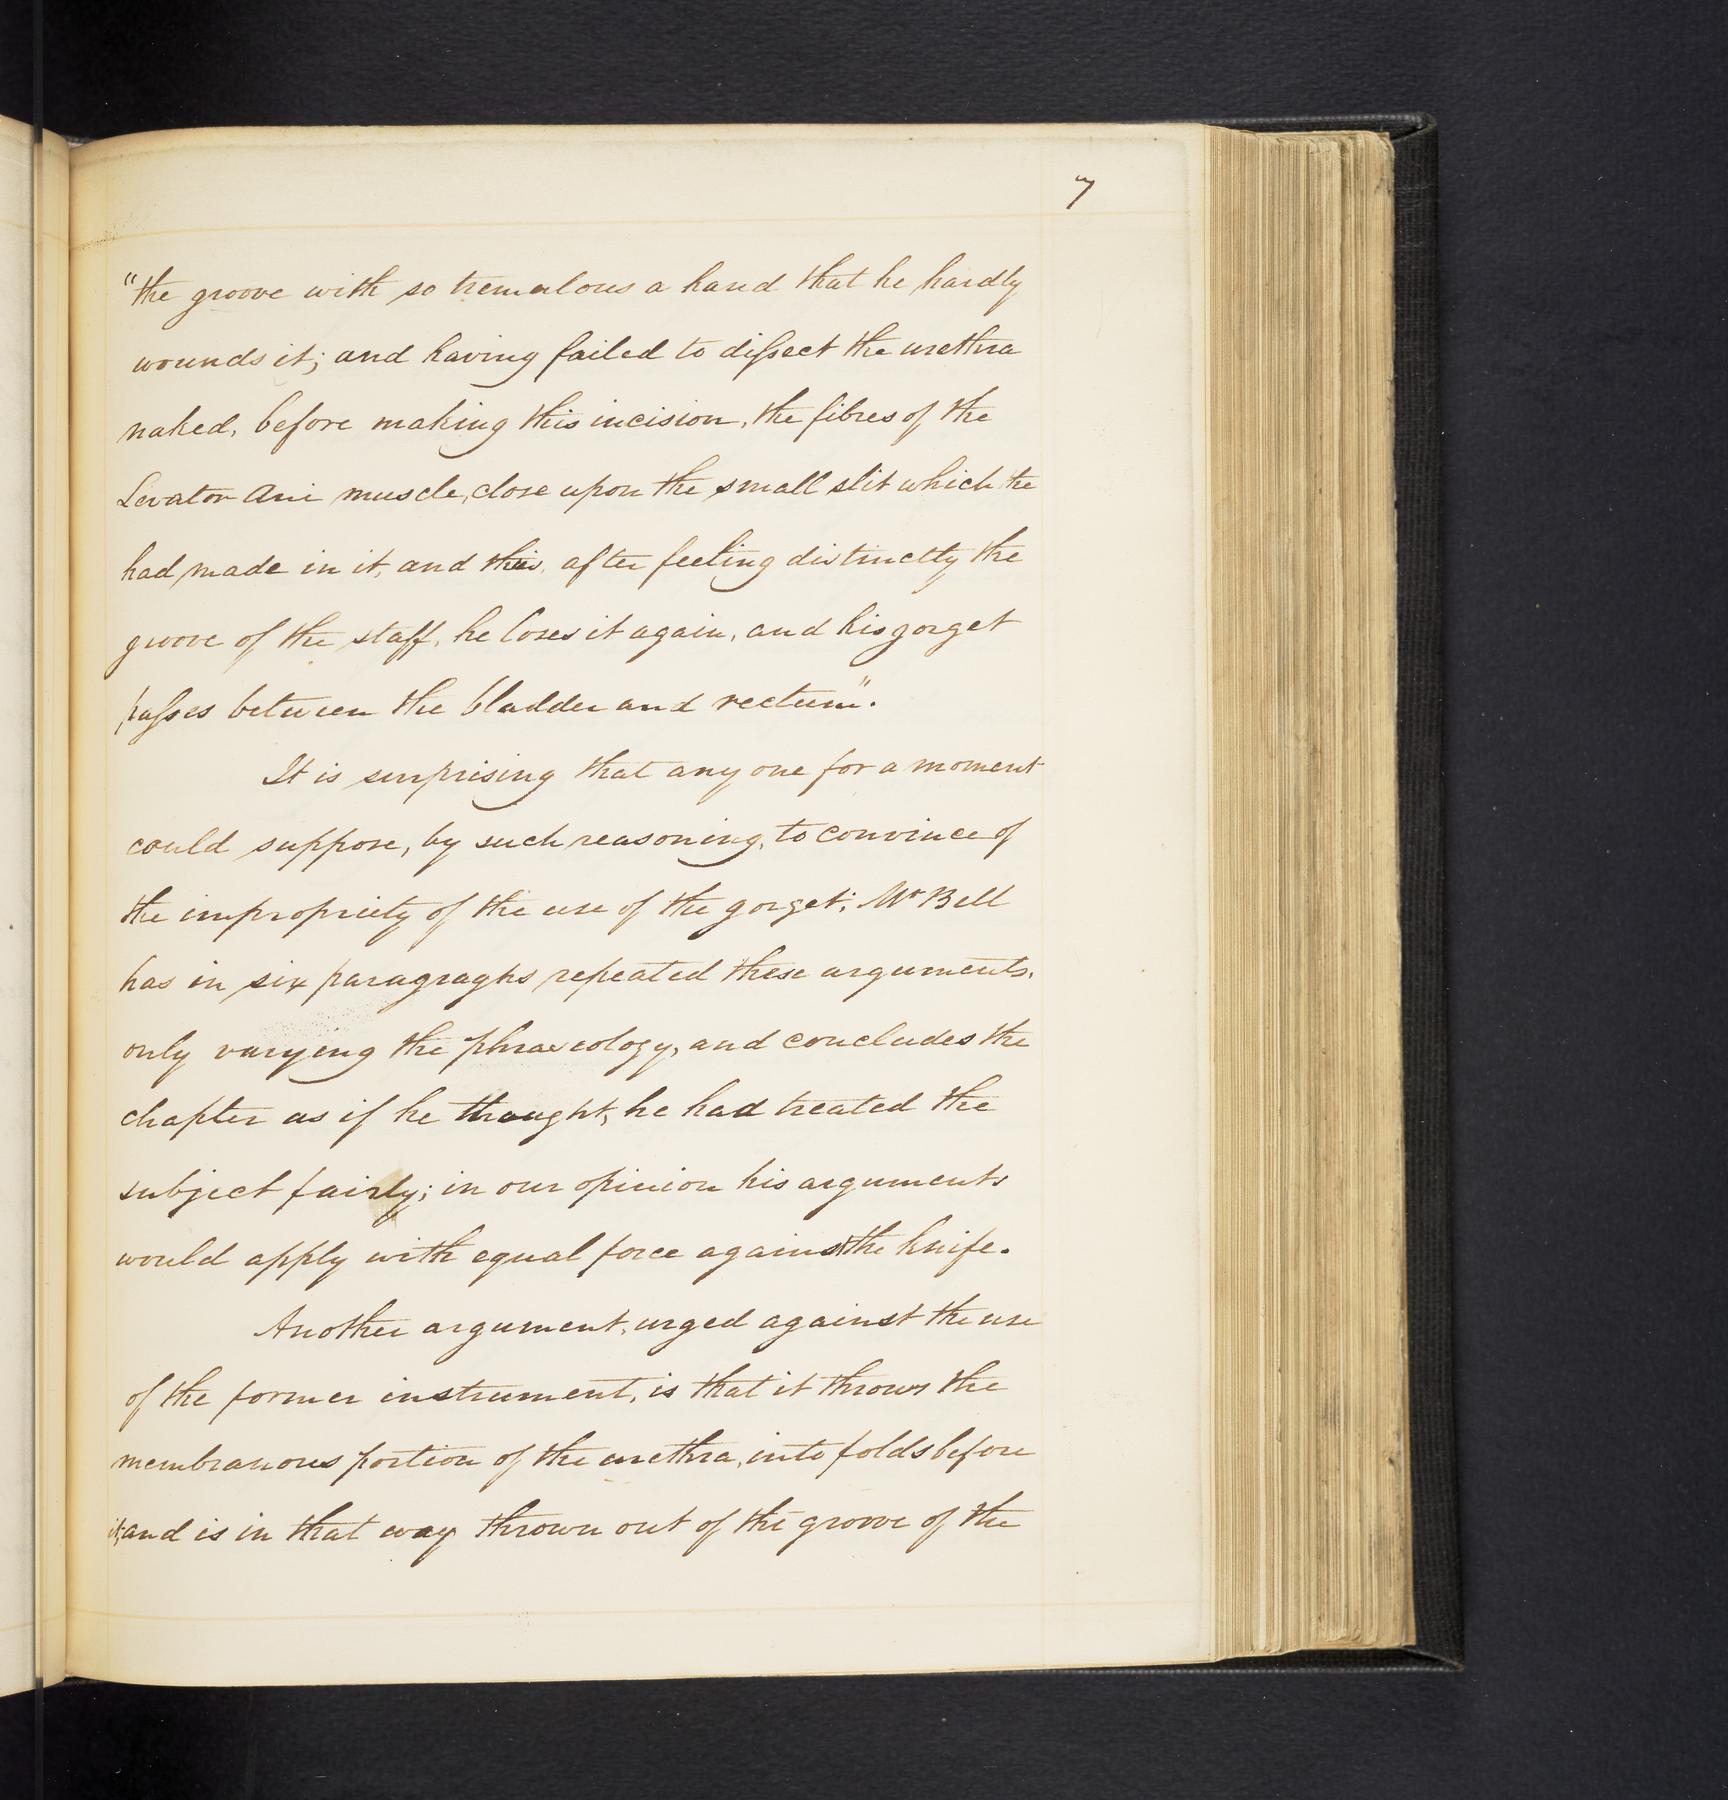 7
"the groove with so tremulous a hand that he hardly
wounds it; and having failed to dissect the urethra
naked, before making this incision, the fibres of the
Levator Ani muscle, close upon the small slit which the
had made in it, and this, after feeling distinctly the
groove of the staff, he loses it again, and his gorget
passes between the bladder and rectum".
It is surprising that any one for a moment
could suppose, by such reasoning, to convince of
the impropriety of the use of the gorget; Mr Bell
has in six paragraphs repeated these arguments,
only varying the phraseology, and concludes the
chapter as if he thought, he had treated the
subject fairly; in our opinion his arguments
would apply with equal force against the knife.
Another argument, urged against the use
of the former instrument, is that it throws the
membranous portion of the urethra, into folds before
it, and is in that way thrown out of the groove of the